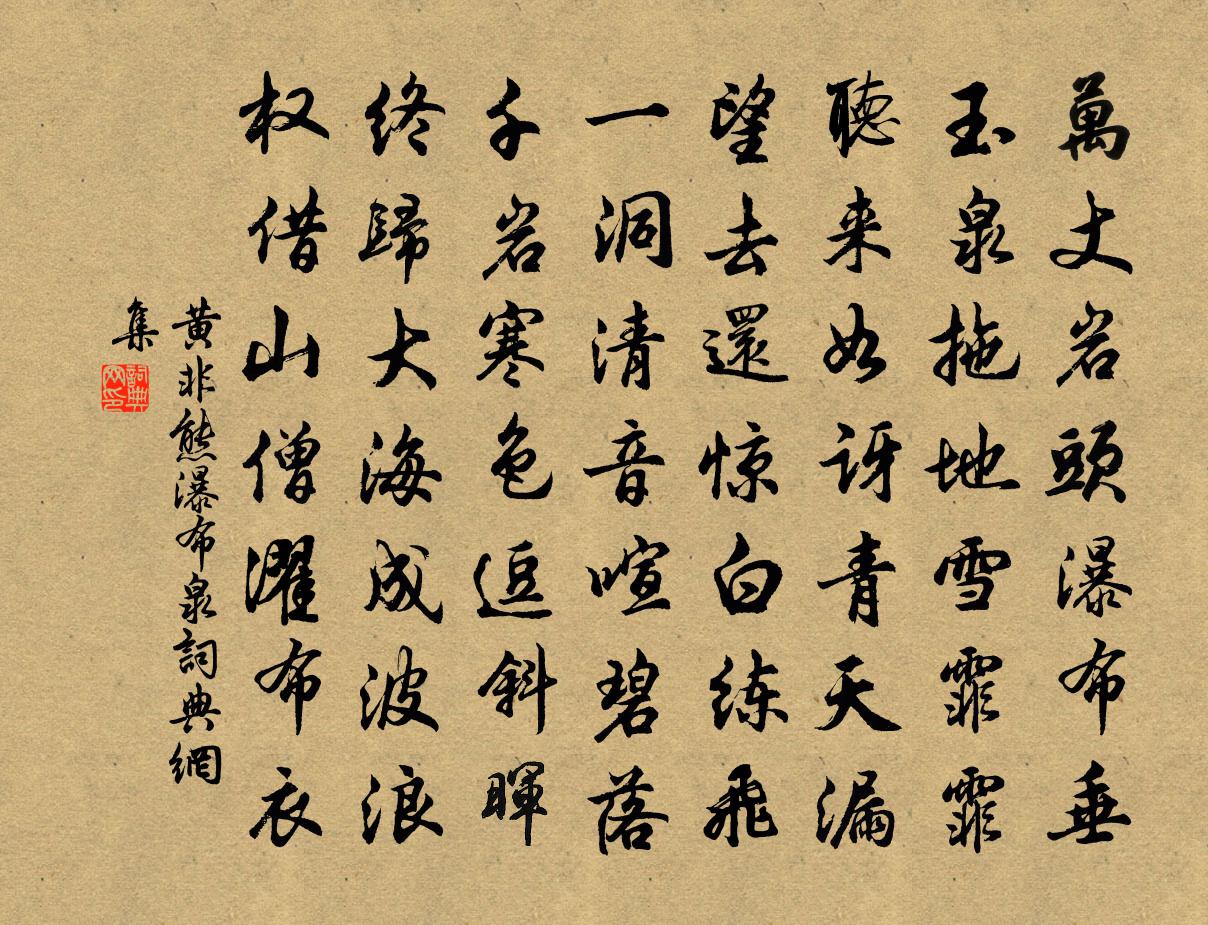 萬丈岩頭瀑布垂
玉泉拖地雪霏霏
聽来如訝青天漏
望去還惊白练飛
一洞清音喧碧落
千岩寒色逗斜暉
终歸大海成波浪
权借山僧濯布衣
黄非熊瀑布泉詞典網
集
詞典
网印